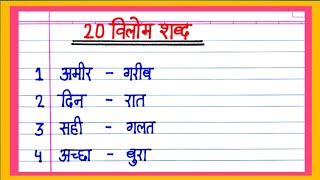 20 विलोम शब्द
1 अमीर - गरीब
2 दिन - रात
3 सही - गलत
4 अच्छा - बुरा